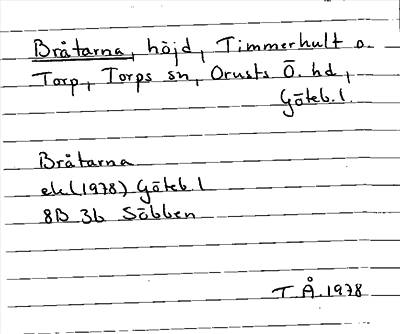 Bråtarna, höjd, Timmerhult o.
Torp, Torps sn, Orusts Ö. hd,
Göteb. l.
Bråtarna
ek (1978) Göteb. l
8B 3b Säbben
T. Å. 1978